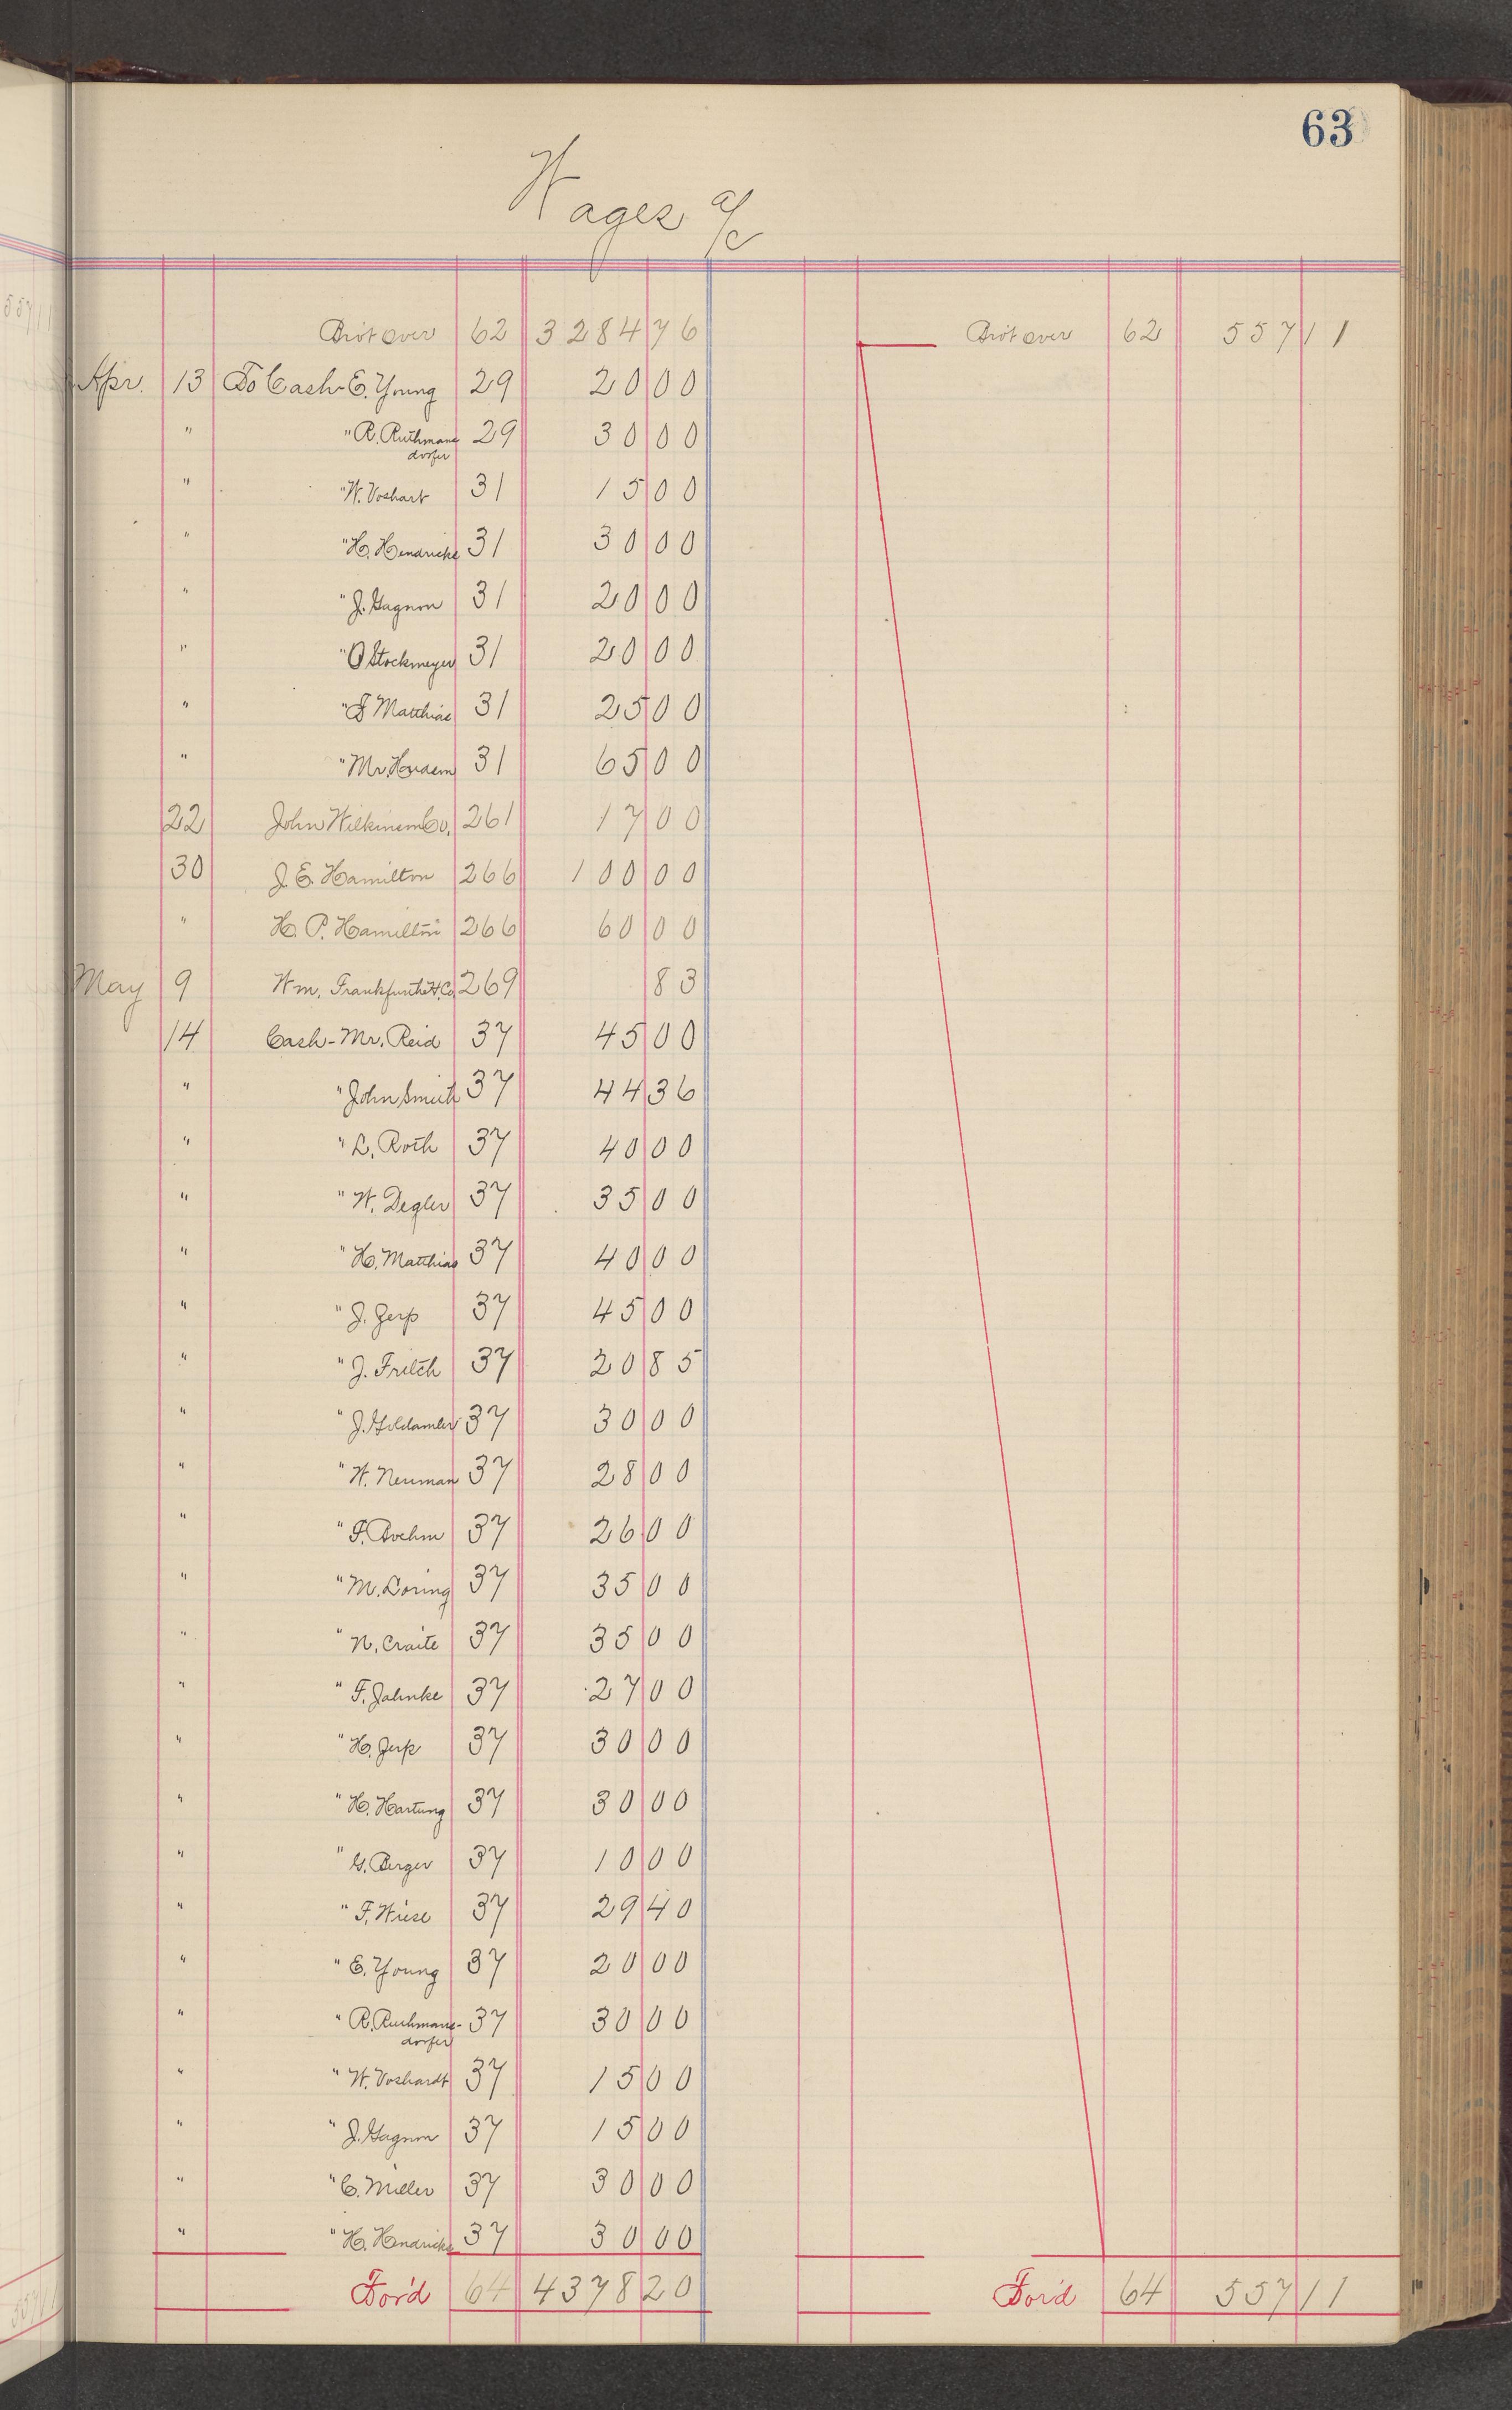 63
Wages a/c
Bro't over 62 3284 76 Bro't over 62 557 11
Apr. 13 To Cash E. Young 29 20 00
" " R. Ruthmans 29 30 00
dorfer
" " W. Voshart 31 15 00
" " H. Hendricks 31 30 00
" " J. Gagnon 31 20 00
" " O Stockmeyer 31 20 00
" " F Matthias 31 25 00
" " Mr. 31 65 00
22 John Wilkinson Co. 261 17 00
30 J. E. Hamilton 266 100 00
" H. P. Hamilton 266 60 00
May 9 Wm. Frankfurth H. Co. 269 83
14 Cash - Mr. Reid 37 45 00
" " John Smith 37 44 36
" " L. Roth 37 40 00
" " W. Degler 37 35 00
" " H. Matthias 37 40 00
" " J. Jerp 37 45 00
" " J. Fritch 37 20 85
" " J. 37 30 00
" " W. Neuman 37 28 00
" " F. Boehm 37 26 00
" " M. Loring 37 35 00
" " N. Craite 37 35 00
" " F. Jahnke 37 27 00
" " H. Jerp 37 30 00
" " H. Hartung 37 30 00
" " G. Berger 37 10 00
" " F. Wiese 37 29 40
" " E. Young 37 20 00
" " R. Ruthmans- 37 30 00
dorfer
" " W. Voshardt 37 15 00
" " J. Gagnon 37 15 00
" " C. Miller 37 30 00
" " H. Hendricks 37 30 00
For'd 64 4378 20 For'd 64 557 11